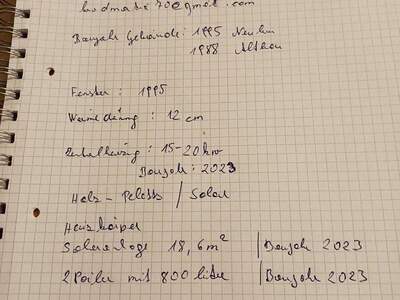 Baujahr Gebäude: 1995 Neubau
1988 Altbau
Fenster: 1995
Wärmedämg: 12 cm
Zentalheizung: 15-20 kw
Baujahr: 2023
Holz-Pelets / Solar
Heizkörper
Solaranlage 18,6 m² | Baujahr 2023
2 Boiler mit 800 liter | Baujahr 2023